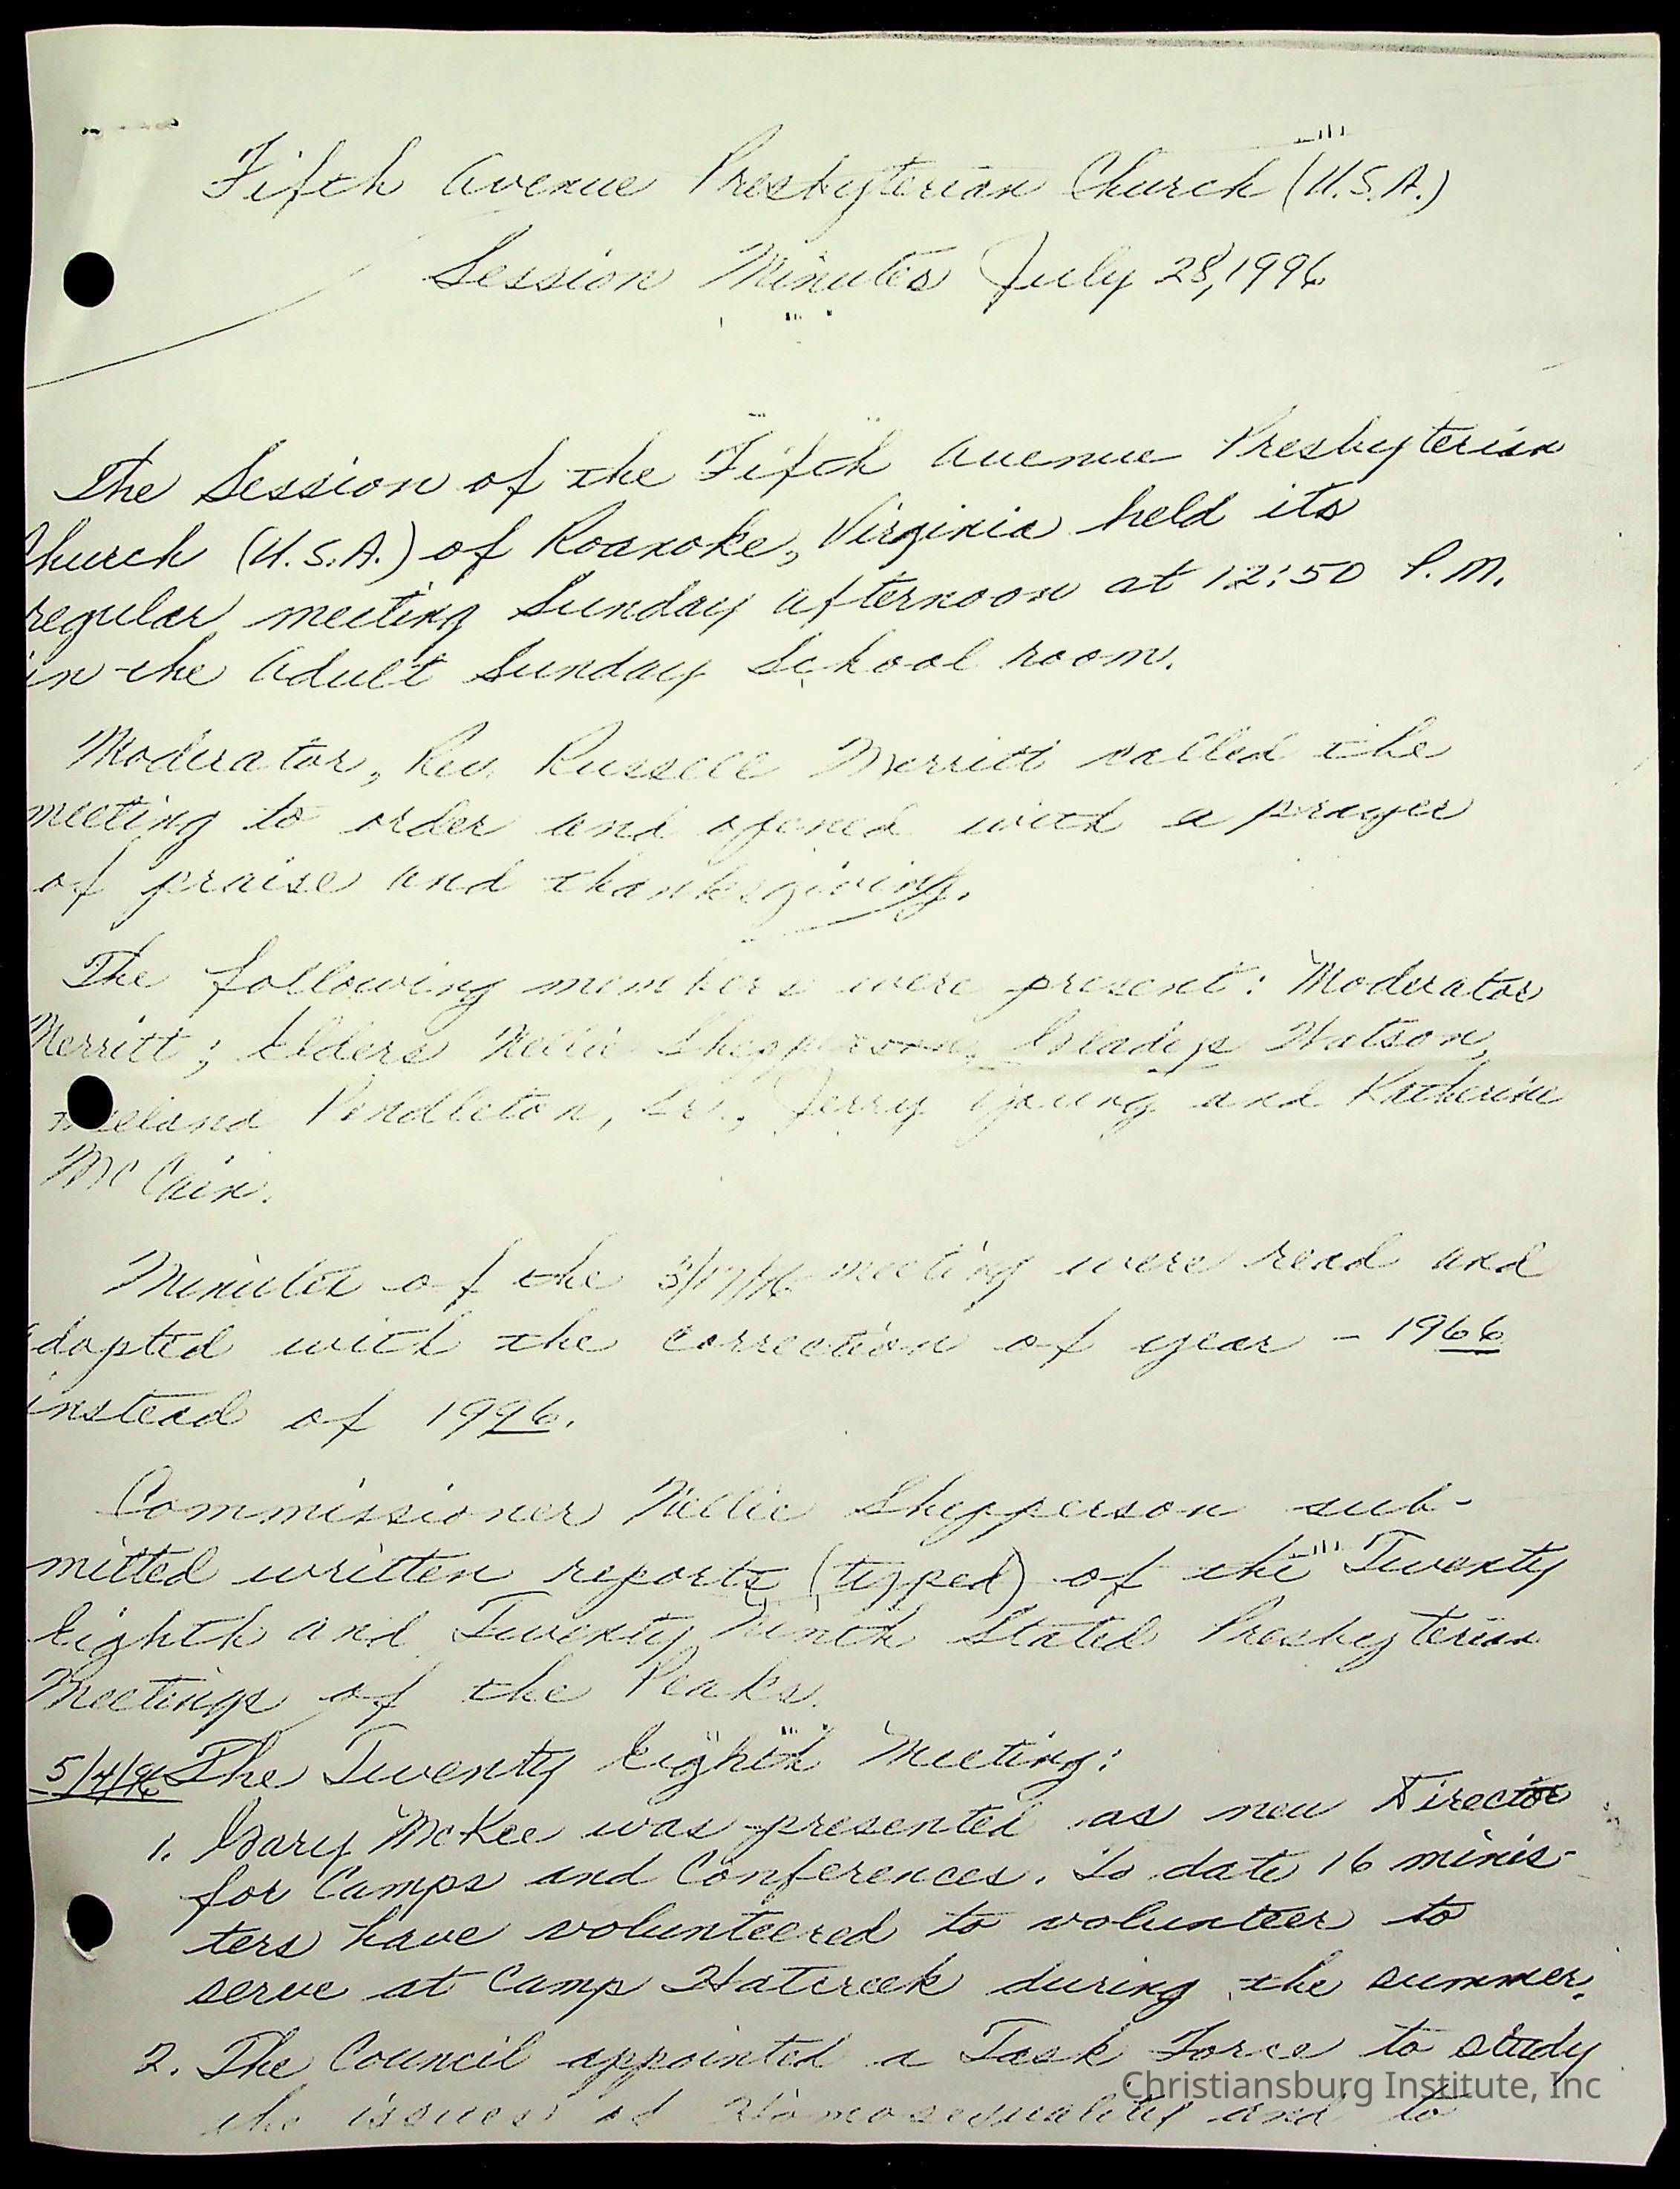 Fifth Avenue Presbyterian Church (U.S.A.)
Session Minutes July 28, 1996
The Session of the Fifth Avenue Presbyterian
Church (U.S.A.) of Roanoke, Virginia held its
regular meeting Sunday afternoon at 12:50 P.M.
in the Adult Sunday School room.
Moderator, Rev. Russell Merritt called the
meeting to order and opened with a prayer
of praise and thanksgiving.
The following members were present: Moderator
Merritt; Elders Nellie Shepperson, Gladys Watson,
Pendleton, Sr., Jerry Young and Katherine
McCain.
Minutes of the meeting were read and
adopted with the correction of year - 1966
instead of 1996.
Commissioner Nellie Shepperson sub-
mitted written reports (typed) of the Twenty
Eighth and Twenty Ninth Stated Presbyterian
Meetings of the Peaks.
5/4/96 The Twenty Eighth Meeting:
1. Gary McKee was presented as new Director
for Camps and Conferences. To date 16 minis-
ters have volunteered to volunteer to
serve at Camp Hatcreek during the summer.
2. The Council appointed a Task Force to study
the issues of Homosexuality and to
Christiansburg Institute, Inc